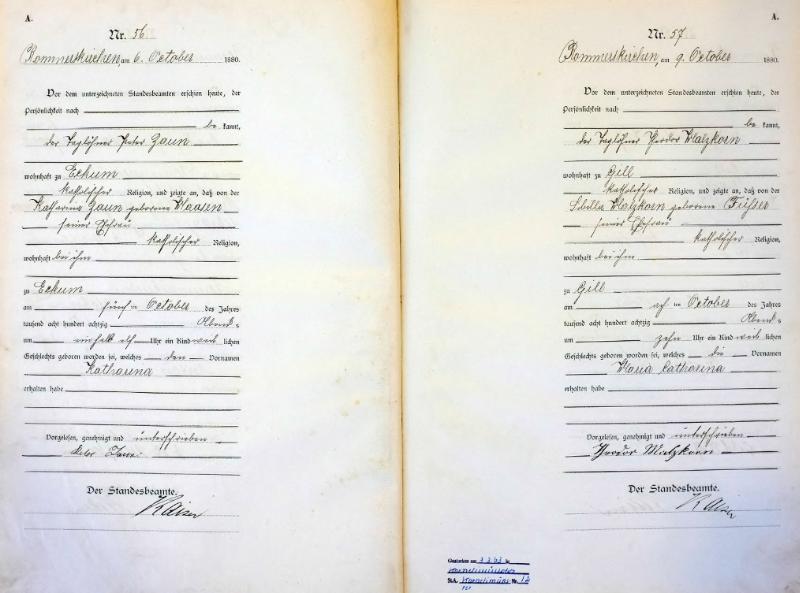 A.
Nr. 56
Rommerskirchen, am 6. October 1880.
Vor dem unterzeichneten Standesbeamten erschien heute, der
Persönlichkeit nach
be kannt,
der Taglöhner Peter Zaun
wohnhaft zu Eckum
katholischer Religion, und zeigte an, daß von der
Katharina Zaun geborene Maasen
seiner Ehefrau
katholischer Religion,
wohnhaft bei ihm
zu Eckum
am fünften October des Jahres
tausend acht hundert achtzig Abends
um ein halb elf Uhr ein Kind weib lichen
Geschlechts geboren worden sei, welches den Vornamen
Katharina
erhalten habe
Vorgelesen, genehmigt und unterschrieben
Peter Zaun
Der Standesbeamte.
Kaiser
A.
Nr. 57
Rommerskirchen, am 9. October 1880.
Vor dem unterzeichneten Standesbeamten erschien heute, der
Persönlichkeit nach
be kannt,
der Taglöhner Theodor Matzkorn
wohnhaft zu Gill
katholischer Religion, und zeigte an, daß von der
Sibilla Matzkorn geborene
seiner Ehefrau
katholischer Religion,
wohnhaft bei ihm
zu Gill
am acht ten October des Jahres
tausend acht hundert achtzig Abends
um zehn Uhr ein Kind weib lichen
Geschlechts geboren worden sei, welches die Vornamen
Maria Catharina
erhalten habe
Vorgelesen, genehmigt und unterschrieben
Theodor Matzkorn
Der Standesbeamte.
Kaiser
Gestorben am 3.3.63 in
Kornelimünster
St.A. Kornelimünster Nr.